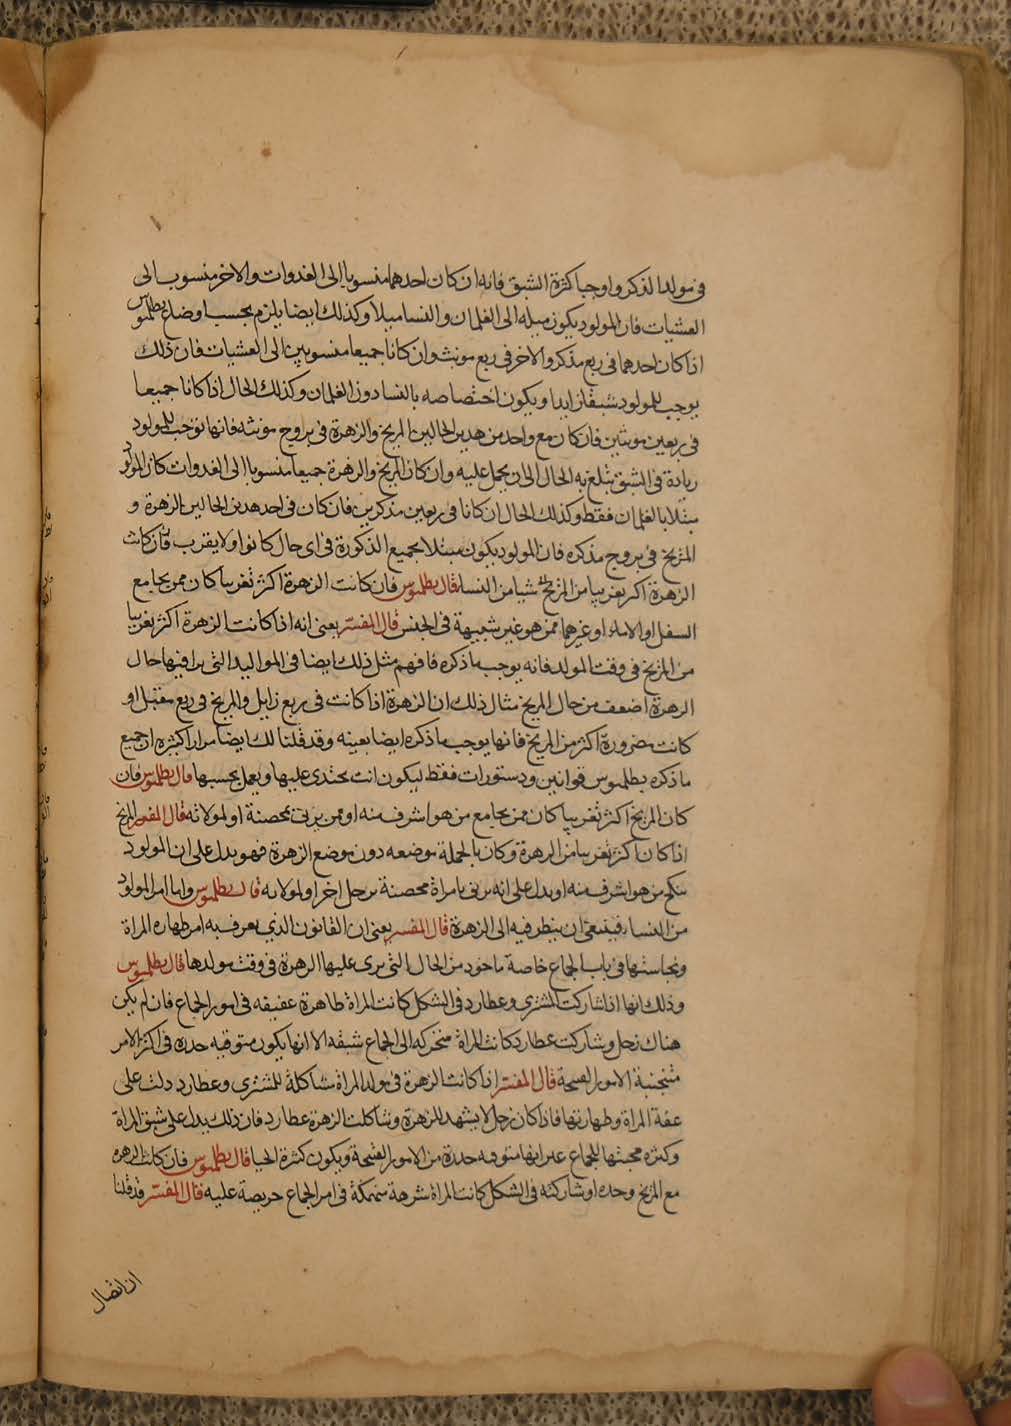 في مولد الذكر واوجبا كثرة الشبق فانه ان كان احدهما منسوبا الى الغدوات والاخر منسوب الى
العشيات فان المولود يكون ميله الى الغلمان والنسا ميلا وكذلك ايضا يلزم بحسب اوضاع بطلميوس
اذا كان احدهما في ربع مذكر والاخر في ربع مونث وان كانا جميعا منسوبين الى العشيات فان ذلك
يوجب للمولود شبقا زايدا ويكون اختصاصه بالنسا دون الغلمان وكذلك الحال اذا كانا جميعا
في ربعين مونثين فان كان مع واحد من هذين الحالين المريخ والزهرة في بروج مونثه فانها توجب للمولود
زيادة في الشبق تبلغ به الحال الى ان يحمل عليه وان كان المريخ والزهرة جميعا منسوبا الى الغدوات كان المولود
مبتلا بالغلمان فقط وكذلك الحال ان كانا في ربعين مذكرين فان كان في احد هذين الحالين الزهرة و
المريخ في بروج مذكره فان المولود يكون مبتلا بجميع الذكورة في اي حال كانوا ولا يقرب فان كانت
الزهرة اكثر تغريبا من المريخ شيا من النسا قال بطلميوس فان كانت الزهرة اكثر تغريبا كان ممن يجامع
السفل او الاماء او غيرهما ممن هو غير شبيهة في الجنس قال المفسر يعني انه اذا كانت الزهرة اكثر تغريبا
من المريخ في وقت المولد فانه يوجب ما ذكره فافهم مثل ذلك ايضا في المواليد التي يرا فيها حال
الزهرة اضعف من حال المريخ مثال ذلك ان الزهرة اذا كانت في ربع زايل والمريخ في ربع مقبل او
كانت مضرورة اكثر من المريخ فانها يوجب ما ذكره ايضا بعينه وقد قلنا لك ايضا مرارا كثيره ان جميع
ما ذكره بطلميوس قوانين ودستورات فقط ليكون انت تحتذى عليها ويعمل بحسبها قال بطلميوس فان
كان المريخ اكثر تغريبا كان ممن يجامع من هو اشرف منه او ممن يزنى بمحصنة او لمولاته قال المفسر المريخ
اذا كان اكثر تغريبا من الزهرة وكان بالجملة موضعه دون موضع الزهرة فهو يدل على ان المولود
ينكح من هو اشرف منه او يدل على انه يزنى بامراة محصنة برجل اخر او لمولاته قال بطلميوس واما امر المولود
من النساء فينبغي ان ينظر فيه الى الزهرة قال المفسر يعني ان القانون الذي يعرف به امر طهاره المراة
ونجاستها في باب الجماع خاصة ماخود من الحال التي يرى عليها الزهرة في وقت مولدها قال بطلميوس
وذلك انها اذا شاركت المشتري وعطارد في الشكل كانت المراة طاهرة عفيفه في امور الجماع فان لم يكن
هناك زحل وشاركت عطارد كانت المراة متحركه الى الجماع شبقه الا انها يكون متوقيه حدره في اكثر الامر
متجنبة الامور القبيحة قال المفسر اذا كانت الزهرة في مولد المراة مشاكلة للمشتري وعطارد دلت على
عفة المراة وطهارتها فاذا كان زحل لا يشهد للزهرة وشاكلت الزهرة عطارد فان ذلك يدل على شبق المراة
وكثره محبتها للجماع غير انها متوقيه حدرة من الامور القبيحة ويكون كثيرة الحيا قال بطلميوس فان كانت الزهره
مع المريخ وحده او شاركته في الشكل كانت المراة شرهة منهمكة في امر الجماع حريصة عليه قال المفسر قد قلنا
ان اتصال